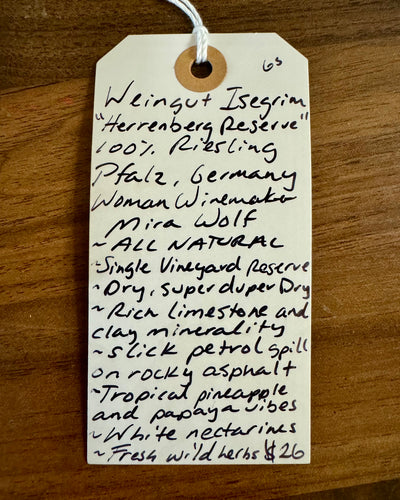 GS
Weingut Isegrim
"Herrenberg Reserve"
100% Riesling
Pfalz, Germany
Woman Winemaker
Mira Wolf
~ ALL NATURAL
~Single Vineyard Reserve
~Dry, super duper Dry
~Rich limestone and
clay minerality
~slick petrol spill
on rocky asphalt
~Tropical pineapple
and papaya vibes
~White nectarines
~Fresh wild herbs $26